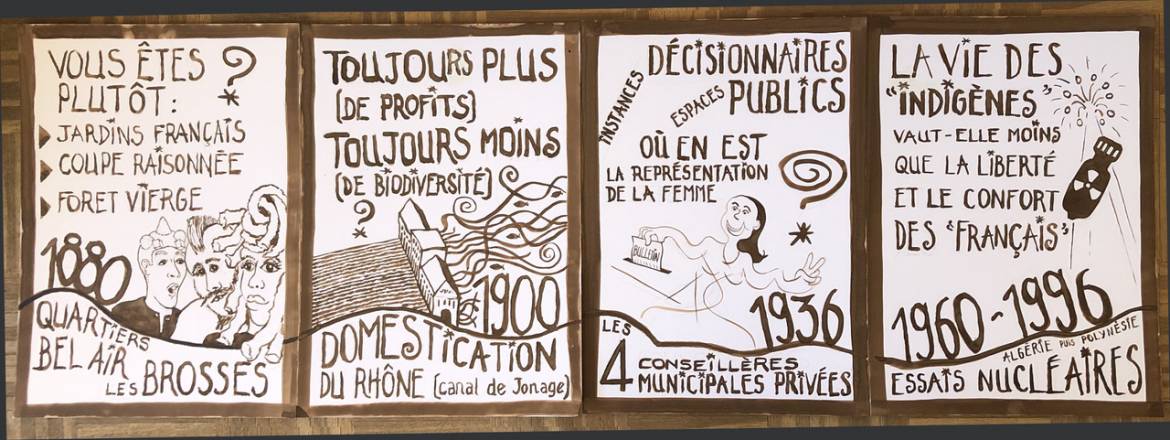 VOUS ÊTES ?
PLUTÔT : *
JARDINS FRANÇAIS
COUPE RAISONNÉE
FORET VIERGE
1880
QUARTIERS
BEL AIR
LES BROSSES
TOUJOURS PLUS
(DE PROFITS)
TOUJOURS MOINS
(DE BIODIVERSITÉ)
?
*
1900
DOMESTICATION
DU RHÔNE (canal de Jonage)
INSTANCES DÉCISIONNAIRES
ESPACES PUBLICS
OÙ EN EST
LA REPRÉSENTATION
DE LA FEMME
*
1936
LES
4 CONSEILLÈRES
MUNICIPALES PRIVÉES
LA VIE DES
"INDIGÈNES"
VAUT-ELLE MOINS
QUE LA LIBERTÉ
ET LE CONFORT
DES "FRANÇAIS"
1960-1996
ALGÉRIE PUIS POLYNÉSIE
ESSAIS NUCLÉAIRES